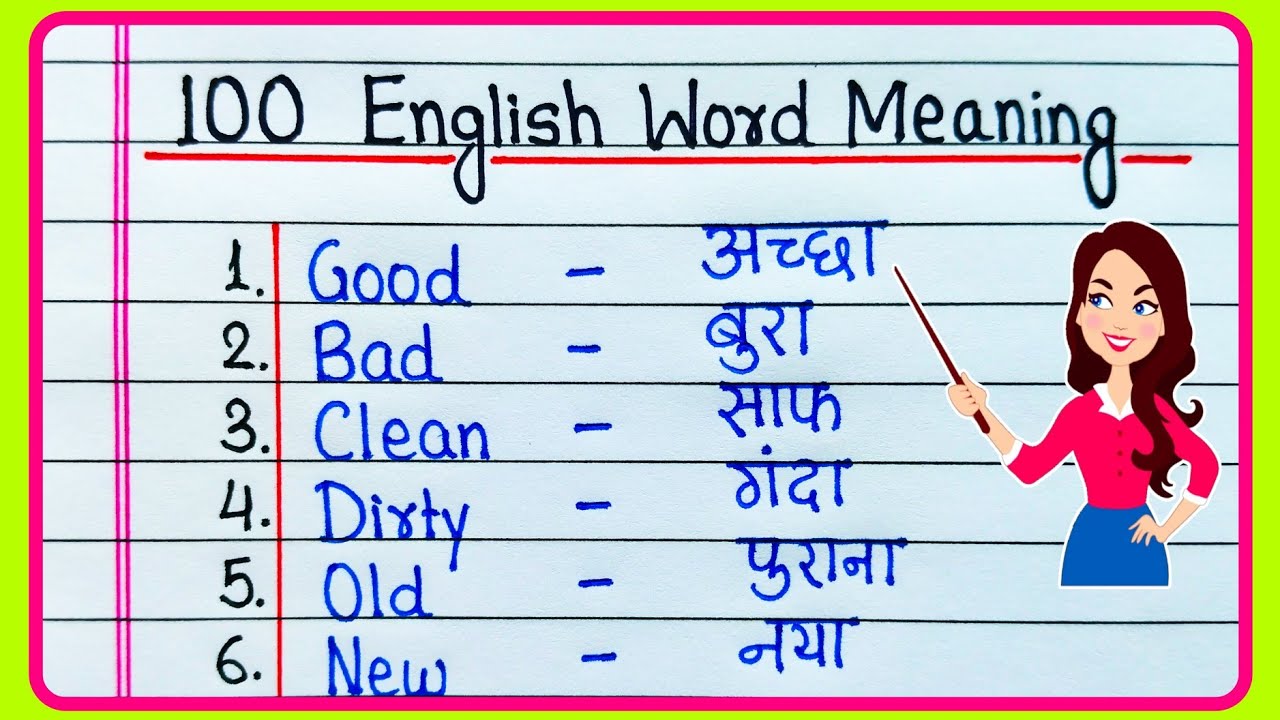 100 English Word Meaning
1. Good - अच्छा
2. Bad - बुरा
3. Clean - साफ
4. Dirty - गंदा
5. Old - पुराना
6. New - नया